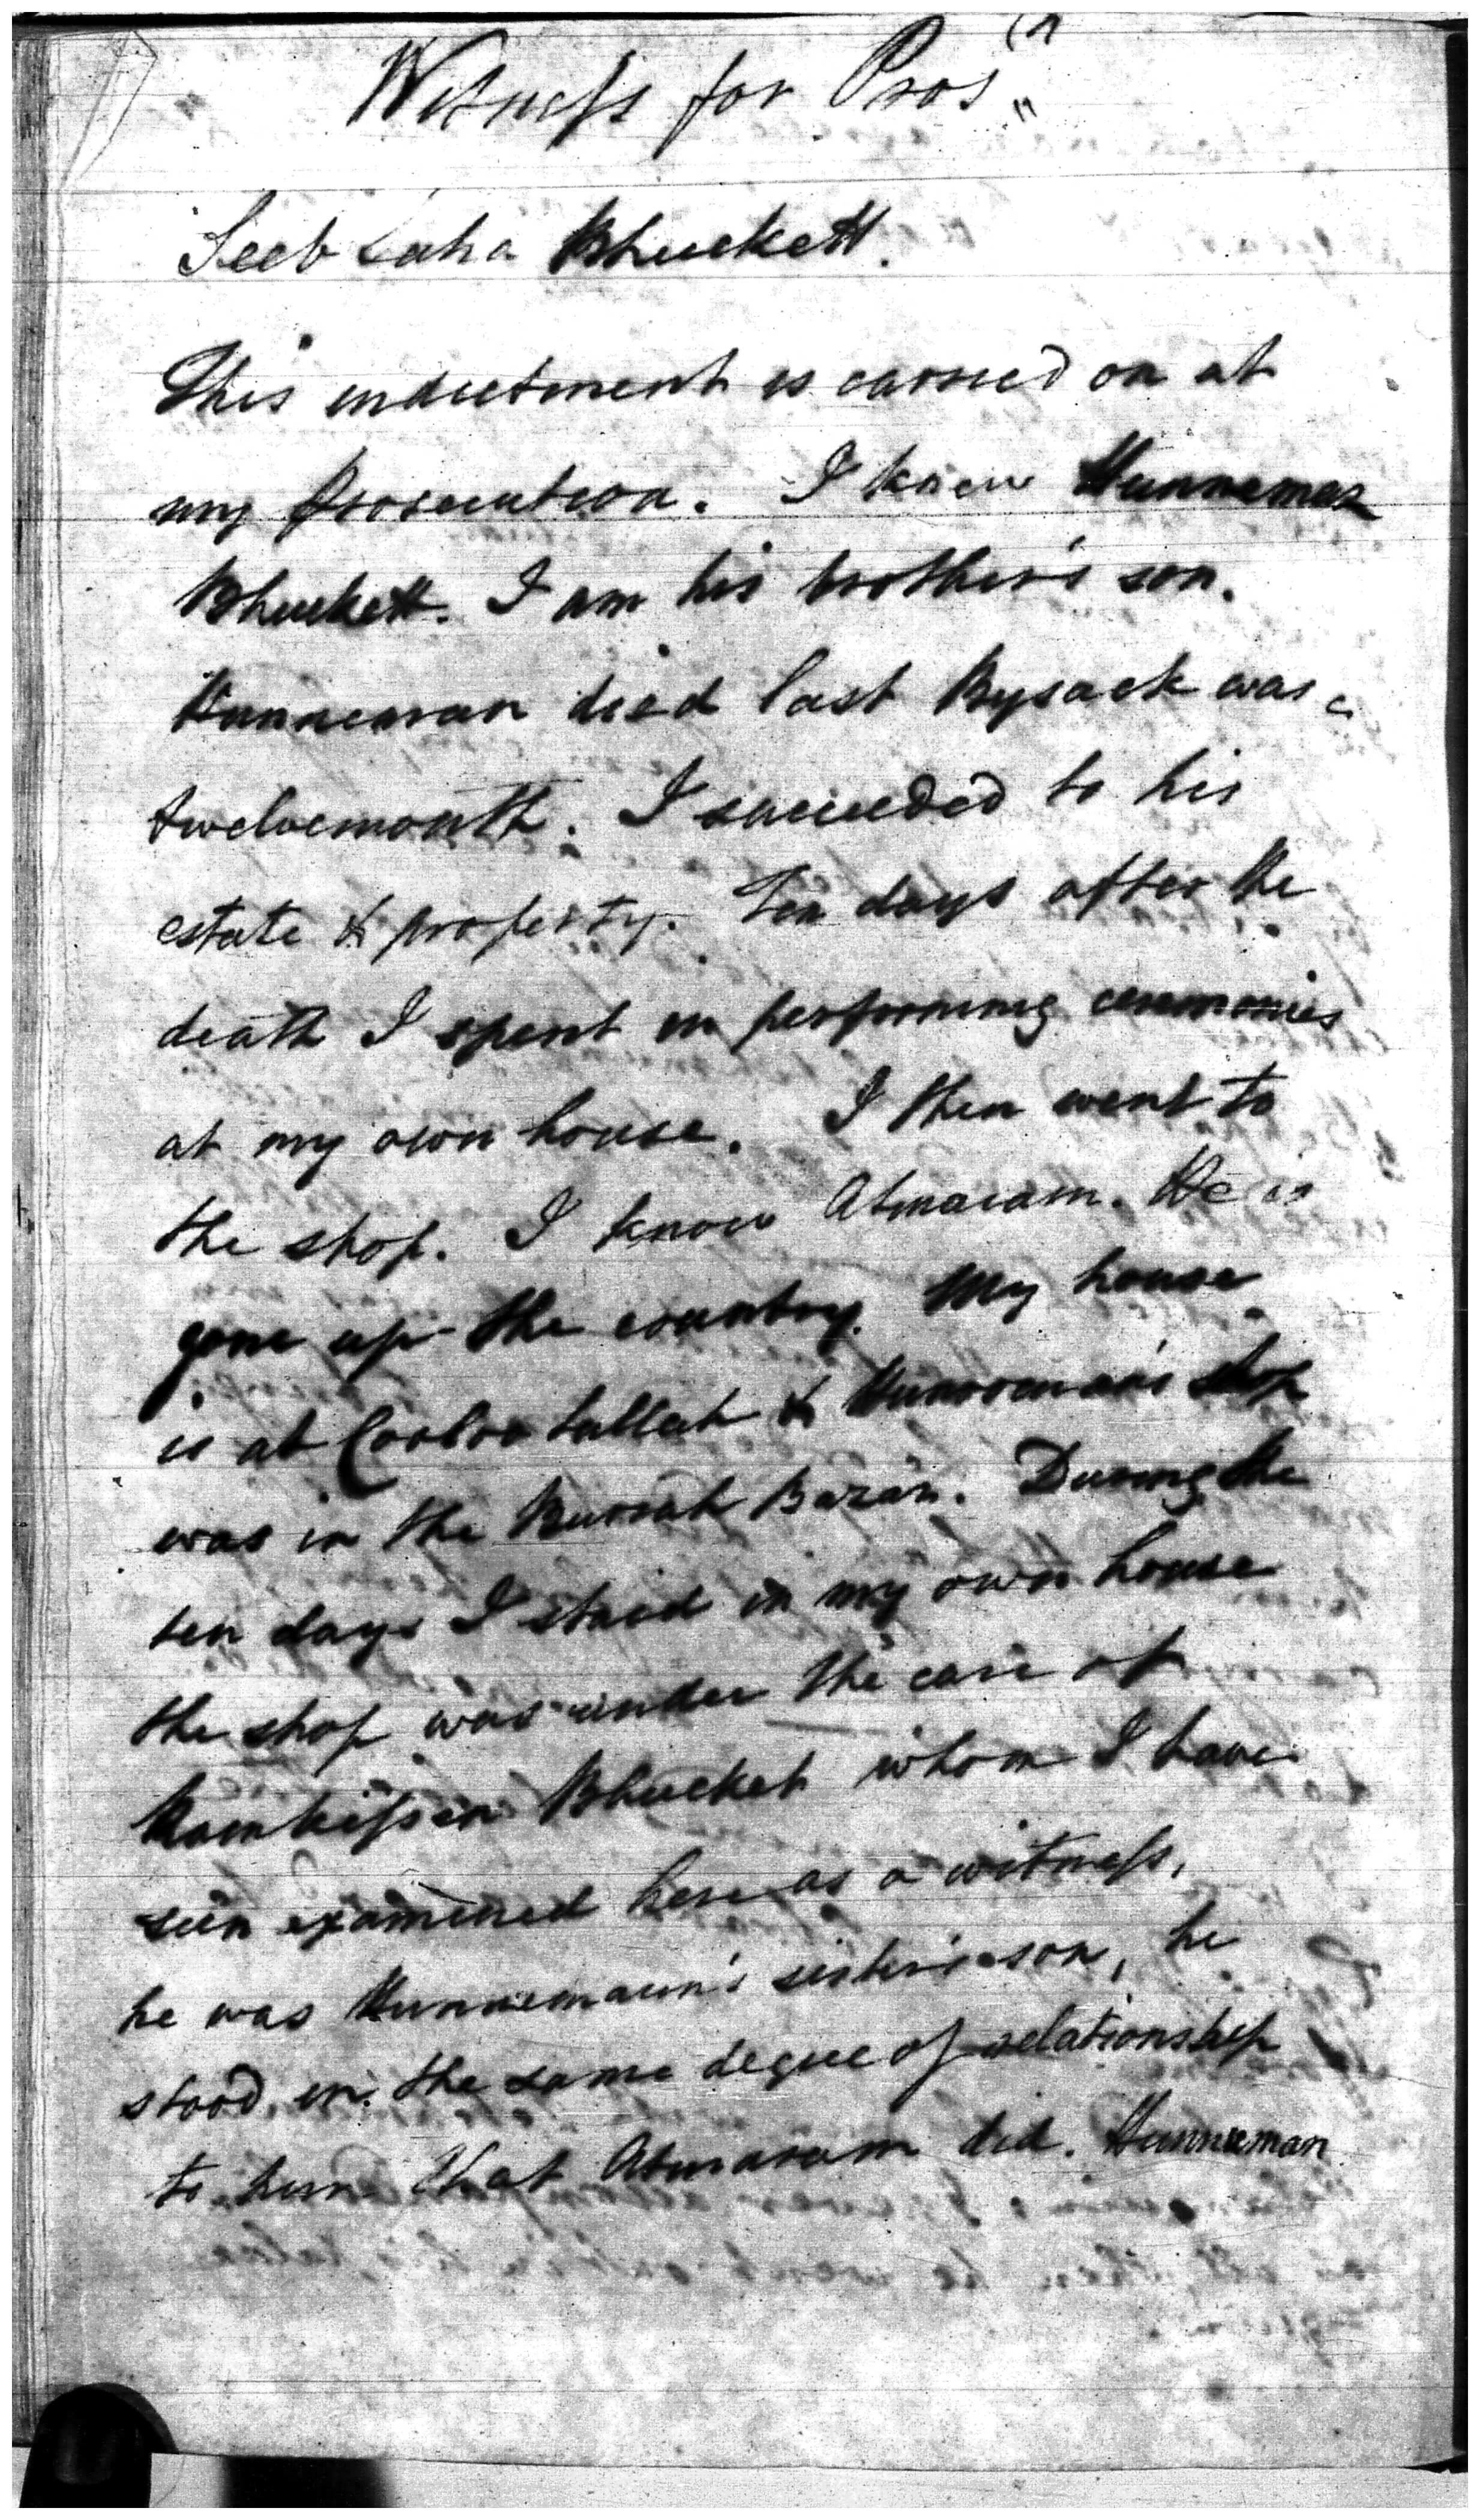 Witness for Pros.n
Seeb Saha Bhuckett.
This indictment is carried on at
my prosecution. I knew Hunneman
Bhuckett. I am his brother's son.
Hunneman died last Bysack was a
twelvemonth. I succeeded to his
estate & property. Ten days after the
death I spent in performing ceremonies
at my own house. I then went to
the shop. I know Atmaram. He is
gone up the country. My house
is at Cooloo tullah & Hunnoman's shop
was in the Burrah Bazar. During the
ten days I staid in my own house
the shop was under the care of
Ramkissen Bhucket whom I have
seen examined here as a witness,
he was Hunnemaun's sister's son, he
stood in the same degree of relationship
to him that Atmaram did. Hunneman